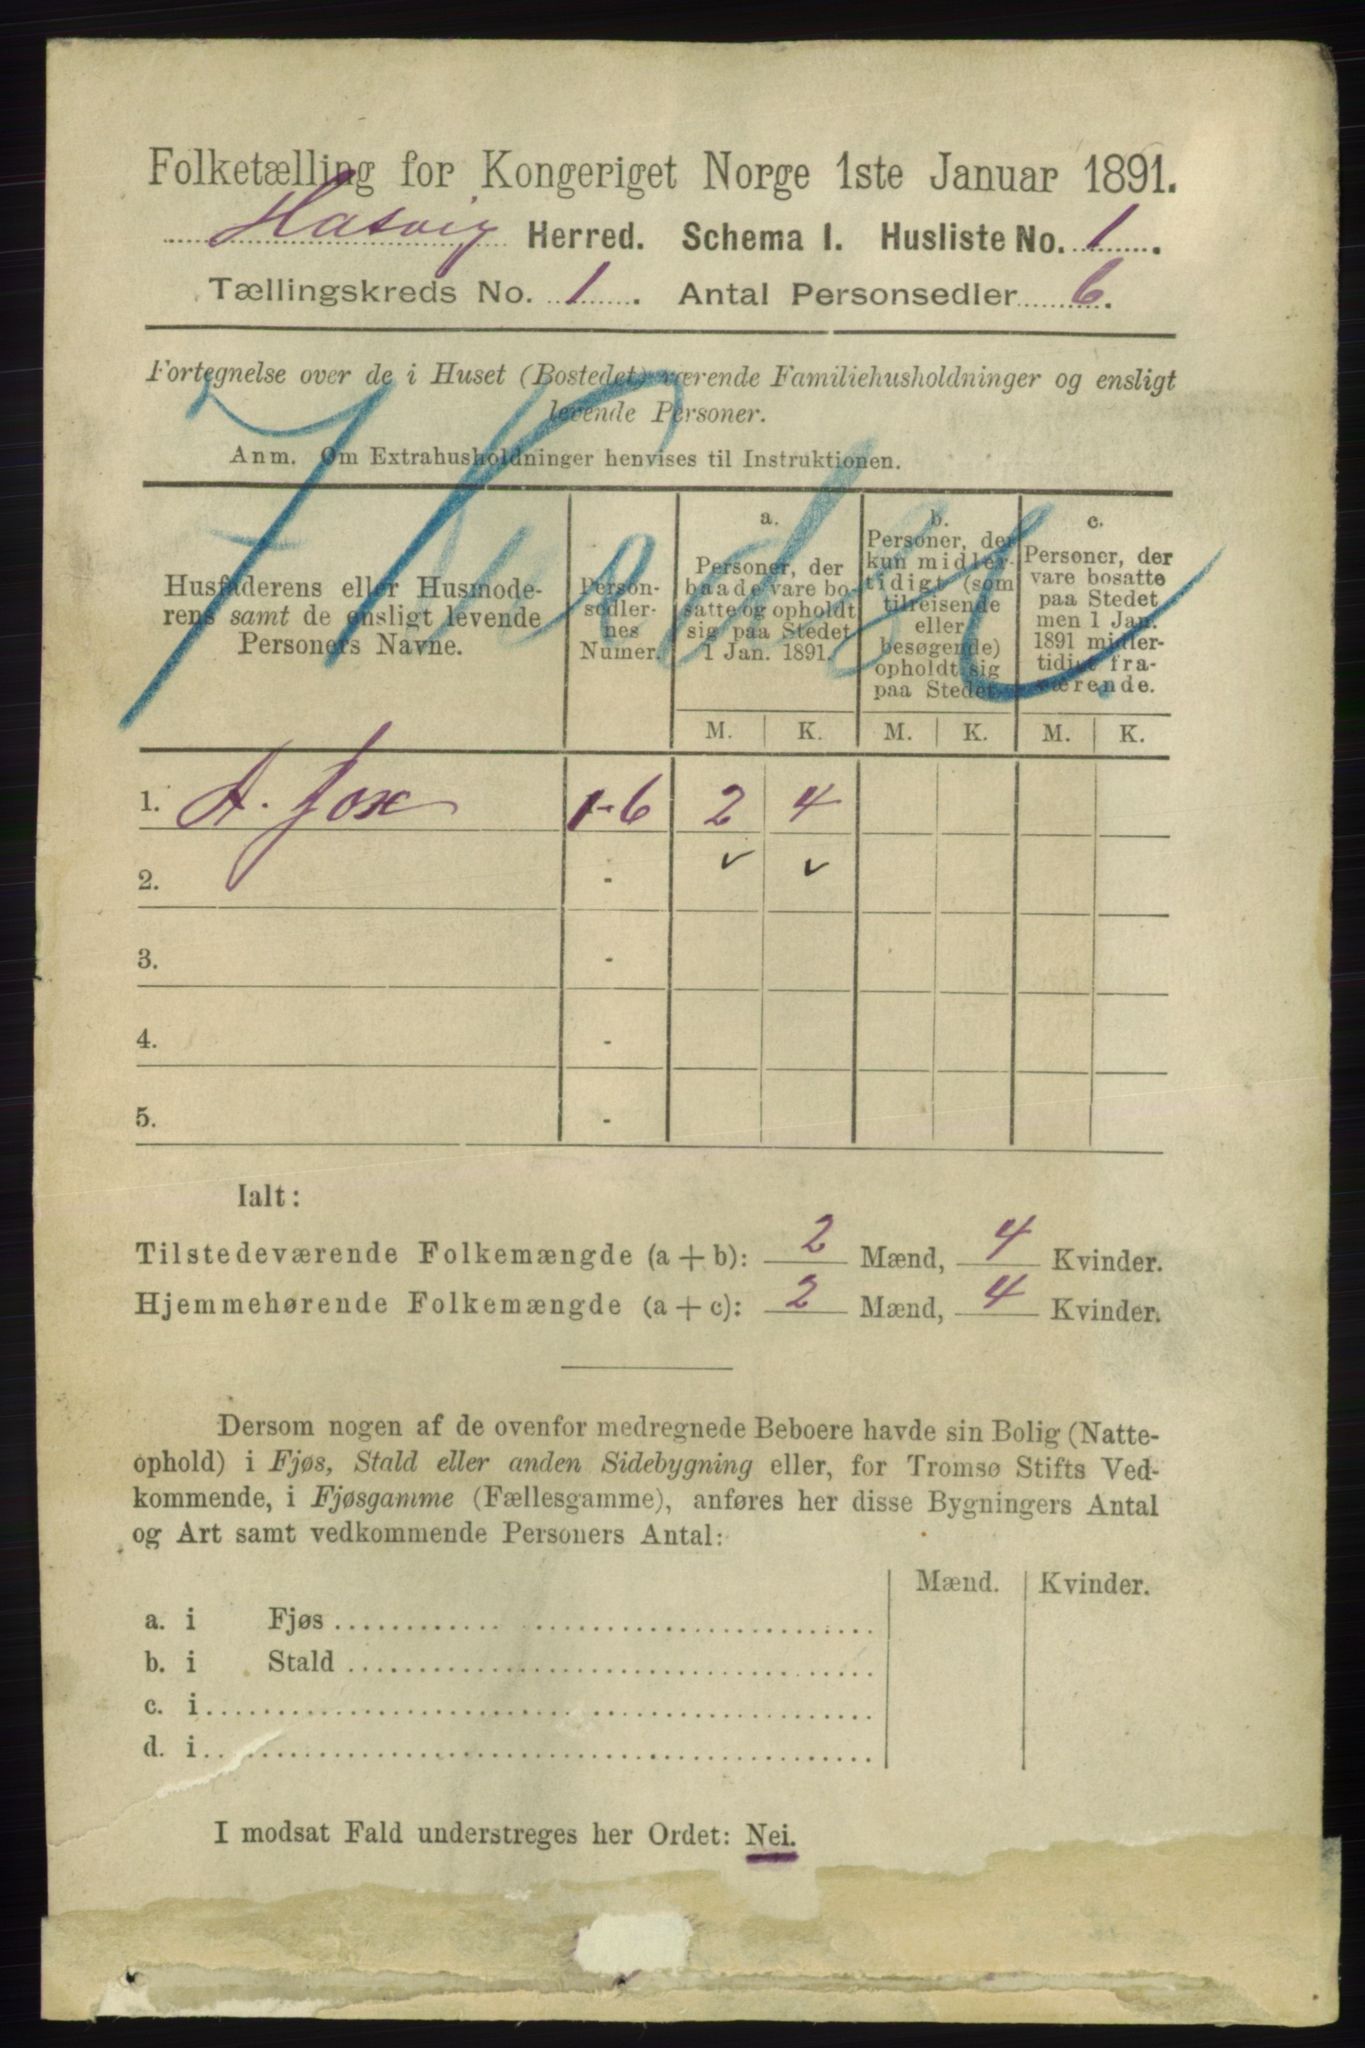 Folketælling for Kongeriget Norge 1ste Januar 1891.
Hasvig Herred. Schema I. Husliste No. 1.
Tællingskreds No. 1. Antal Personsedler 6.
Fortegnelse over de i Huset (Bostedet) værende Familiehusholdninger og ensligt
levende Personer.
Anm. Om Extrahusholdninger henvises til Instruktionen.
Husfaderens eller Husmode-
rens samt de ensligt levende
Personers Navne.
Person-
sedler-
nes
Numer.
a.
Personer, der
baade vare bo-
satte og opholdt
sig paa Stedet
1 Jan. 1891.
b.
Personer, der
kun midler-
tidigt (som
tilreisende
eller
besøgende)
opholdt sig
paa Stedet.
c.
Personer, der
vare bosatte
paa Stedet
men 1 Jan.
1891 midler-
tidigt fra-
værende.
M. K. M. K. M. K.
1. A. Fox 1-6 2 4
2. - ✓ ✓
3. -
4. -
5. -
Ialt:
Tilstedeværende Folkemængde (a + b): 2 Mænd, 4 Kvinder.
Hjemmehørende Folkemængde (a + c): 2 Mænd, 4 Kvinder.
Dersom nogen af de ovenfor medregnede Beboere havde sin Bolig (Natte-
ophold) i Fjøs, Stald eller anden Sidebygning eller, for Tromsø Stifts Ved-
kommende, i Fjøsgamme (Fællesgamme), anføres her disse Bygningers Antal
og Art samt vedkommende Personers Antal:
Mænd. Kvinder.
a. i Fjøs
b. i Stald
c. i
d. i
I modsat Fald understreges her Ordet: Nei.